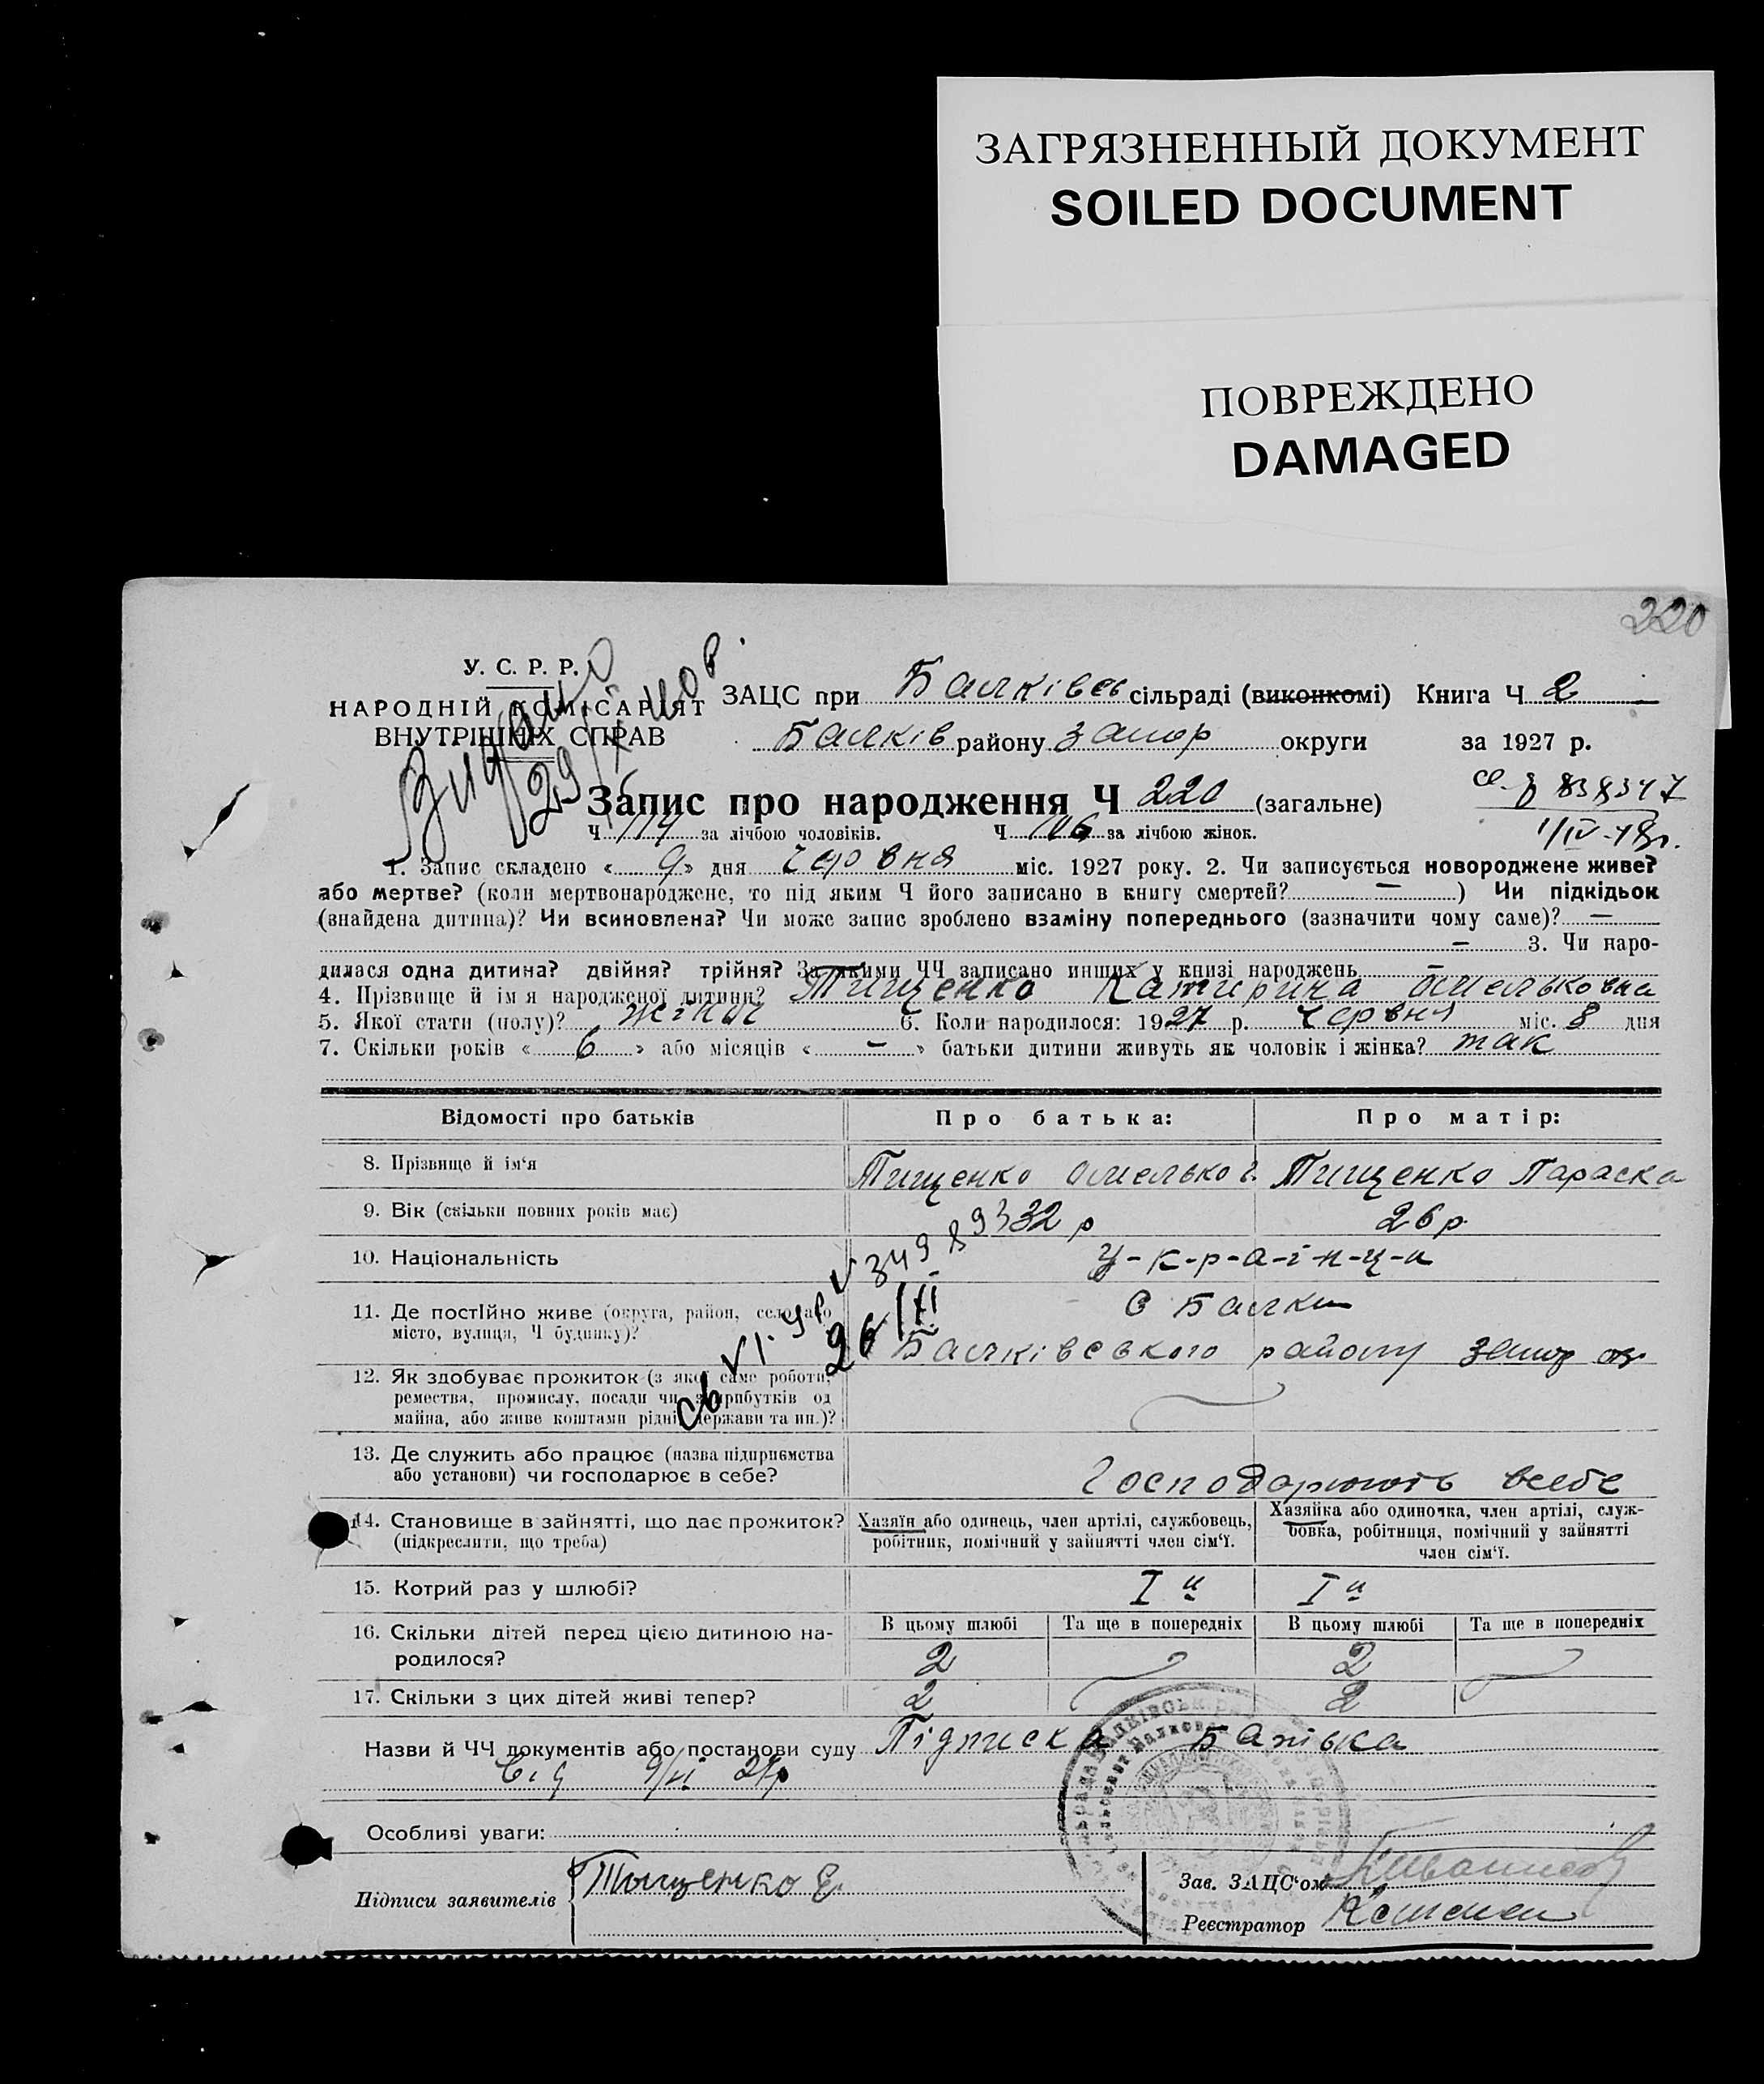 ЗАГРЯЗНЕННЫЙ ДОКУМЕНТ
SOILED DOCUMENT
ПОВРЕЖДЕНО
DAMAGED
220
У. С. Р. Р.
НАРОДНІЙ КОМІСАРІЯТ
ВНУТРІШНІХ СПРАВ
Видано
29/X
ЗАЦС при Балківсь сільраді (виконкомі) Книга Ч 2
Балків району Запор округи за 1927 р.
Запис про народження Ч 220 (загальне)
1/IV-48р.
Ч 114 за лічбою чоловіків. Ч 106 за лічбою жінок.
1. Запис складено « 9 » дня червня міс. 1927 року. 2. Чи записується новороджене живе?
або мертве? (коли мертвонароджене, то під яким Ч його записано в книгу смертей? — ) Чи підкідьок
(знайдена дитина)? Чи всиновлена? Чи може запис зроблено взаміну попереднього (зазначити чому саме)? —
— 3. Чи наро-
дилася одна дитина? двійня? трійня? За якими ЧЧ записано инших у книзі народжень —
4. Прізвище й ім'я народженої дитини? Тищенко Катирина Омельковна
5. Якої стати (полу)? жіноч 6. Коли народилося: 1927 р. червня міс. 8 дня
7. Скільки років « 6 » або місяців « — » батьки дитини живуть як чоловік і жінка? так
Відомості про батьків Про батька: Про матір:
8. Прізвище й ім'я Тищенко Омелько Г. Тищенко Параска
9. Вік (скільки повних років має) 32 р 26 р.
10. Національність У-к-р-а-ї-н-ц-и
11. Де постійно живе (округа, район, село або С Балки
місто, вулиця, Ч будинку)? Балківського району Запор ок.
26/XI
12. Як здобуває прожиток (з якої саме роботи,
ремества, промислу, посади чи з прибутків од
майна, або живе коштами рідні, держави та ин.)?
13. Де служить або працює (назва підприємства
або установи) чи господарює в себе? Господарюють в себе
14. Становище в зайнятті, що дає прожиток? Хазяїн або одинець, член артілі, службовець, Хазяйка або одиночка, член артілі, служ-
(підкреслити, що треба) робітник, помічний у зайнятті член сім'ї. бовка, робітниця, помічний у зайнятті
член сім'ї.
15. Котрий раз у шлюбі? I й I й
16. Скільки дітей перед цією дитиною на- В цьому шлюбі Та ще в попередніх В цьому шлюбі Та ще в попередніх
родилося? 2 2
17. Скільки з цих дітей живі тепер? 2 2
Назви й ЧЧ документів або постанови суду Підписка Батька
від 9/VI 27р
Особливі уваги:
Підписи заявителів Тыщенко Е
Зав. ЗАЦС'ом
Реєстратор